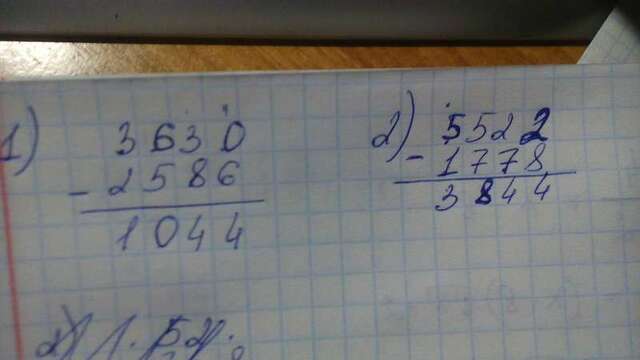 1) 3630
- 2586
1044
2) 5522
- 1778
3844